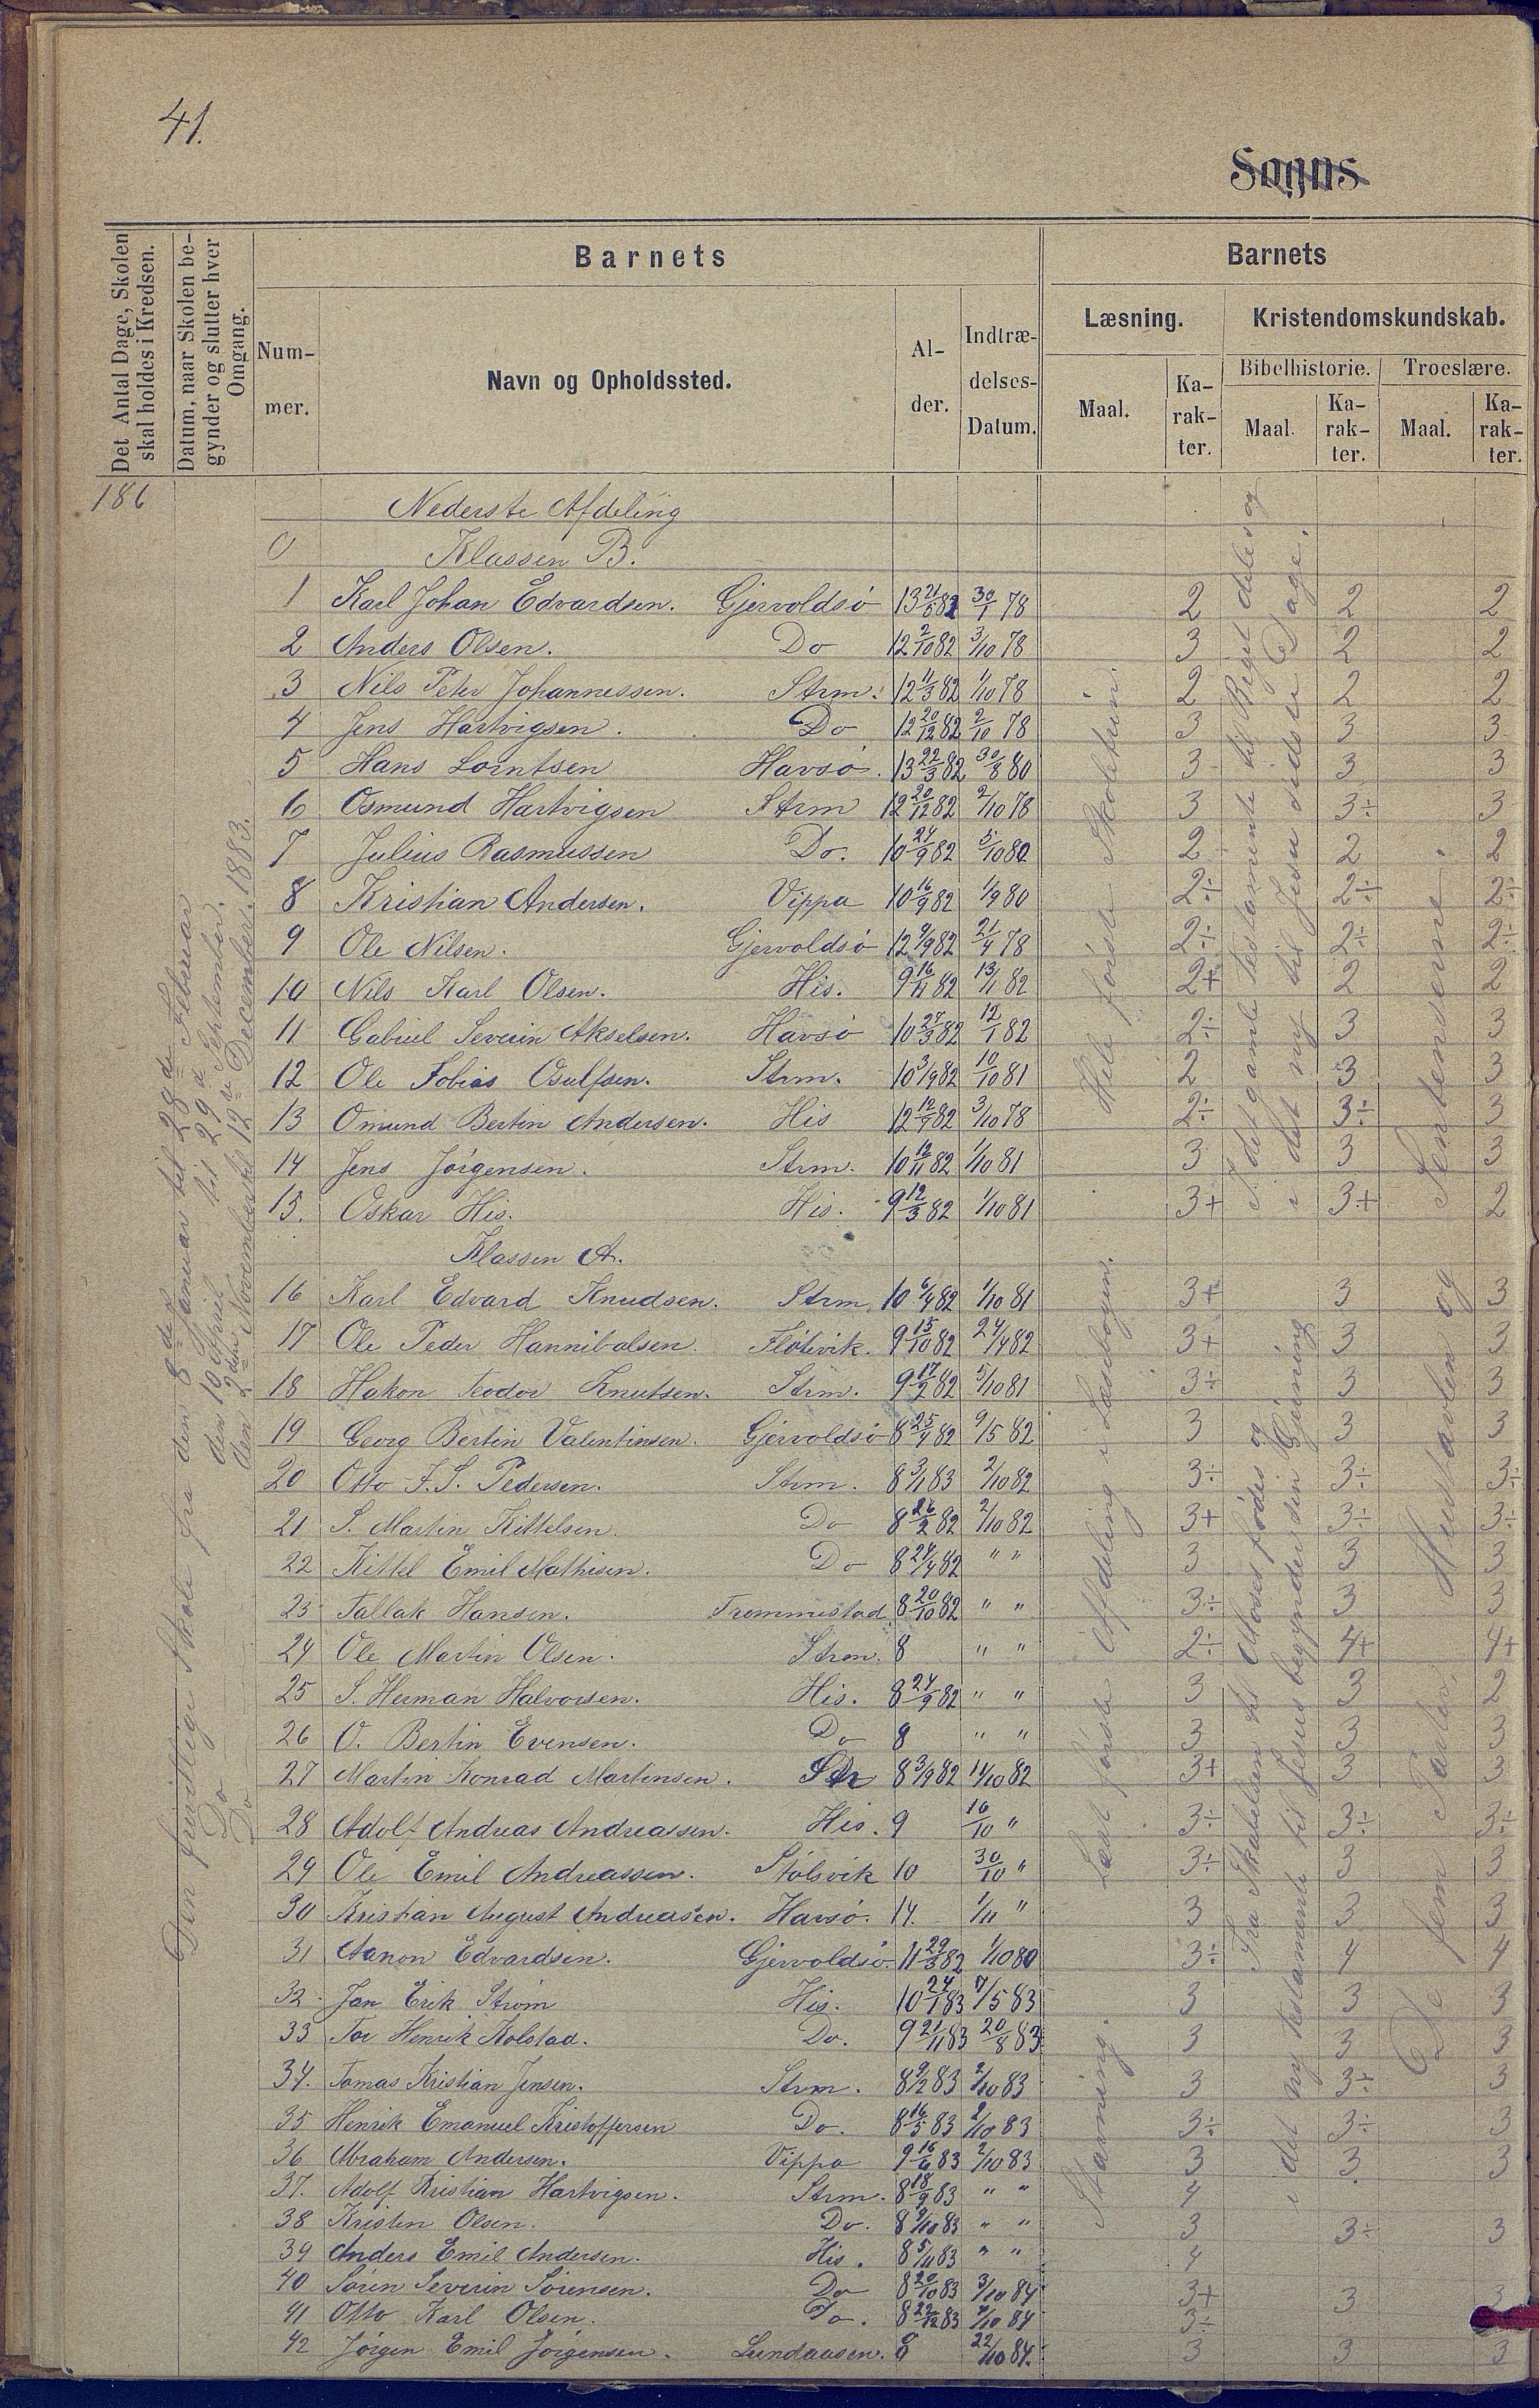 41.
Sogns
Det Antal Dage, Skolen skal holdes i Kredsen.
Datum, naar Skolen begynder og slutter hver Omgang.
Barnets
Barnets
Num-mer.
Navn og Opholdssted.
Al-der.
Indtræ-delses-Datum.
Læsning.
Kristendomskundskab.
Maal.
Ka-rak-ter.
Bibelhistorie.
Troeslære.
Maal.
Ka-rak-ter.
Maal.
Ka-rak-ter.
186
Nederste Afdeling
0 Klassen B.
1 Karl Johan Edvardsen. Gjervoldsö 13 21/5 82 30/1 78 2 2 2
2 Anders Olsen. Do 12 2/10 82 3/10 78 3 2 2
3 Nils Peter Johannessen. Strm. 12 11/3 82 1/10 78 2 2 2
4 Jens Hartvigsen. Do 12 20/12 82 2/10 78 3 3 3
5 Hans Lorntsen Havsö. 13 22/3 82 30/8 80 3 3 3
6 Osmund Hartvigsen Strm 12 20/12 82 2/10 78 3 3÷ 3
7 Julius Rasmussen Do. 10 24/9 82 5/10 80 2 2 2
8 Kristian Andersen. Vippa 10 16/9 82 1/9 80 2÷ 2÷ 2÷
9 Ole Nilsen. Gjervoldsö 12 9/9 82 21/4 78 2÷ 2÷ 2÷
10 Nils Karl Olsen. His. 9 16/11 82 13/11 82 2+ 2 2
11 Gabriel Severin Akselsen. Havsö 10 27/3 82 12/1 82 2÷ 3 3
12 Ole Tobias Osulfsen. Strm. 10 3/9 82 10/10 81 2 3 3
13 Omund Bertin Andersen. His 12 12/9 82 3/10 78 2÷ 3÷ 3
14 Jens Jörgensen. Strm. 10 12/11 82 1/10 81 3 3 3
15. Oskar His. His. 9 12/3 82 1/10 81 3+ 3+ 2
Klassen A.
16 Karl Edvard Knudsen. Strm. 10 6/4 82 1/10 81 3+ 3 3
17 Ole Peder Hannibalsen. Flötevik. 9 15/10 82 24/4 82 3+ 3 3
18 Hakon Teodor Knutsen. Strm. 9 17/2 82 5/10 81 3÷ 3 3
19 Georg Bertin Valentinsen. Gjervoldsö 8 25/4 82 9/5 82 3 3 3
20 Otto F. S. Pedersen. Strm. 8 3/11 83 2/10 82 3÷ 3÷ 3÷
21 S. Martin Kittelsen. Do 8 26/2 82 2/10 82 3+ 3÷ 3÷
22 Kittel Emil Mathisen. Do 8 24/4 82 " " 3 3 3
23 Tallak Hansen. Trommestad 8 20/10 82 " " 3÷ 3 3
24 Ole Martin Olsen. Strm. 8 " " 2÷ 4+ 4+
25 S. Herman Halvorsen. His. 8 24/9 82 " " 3 3 2
26 O. Bertin Evensen. Do 8 " " 3 3 3
27 Martin Konrad Martinsen. Str 8 3/9 82 11/10 82 3+ 3 3
28 Adolf Andreas Andreassen. His. 9 16/10 " 3÷ 3÷ 3÷
29 Ole Emil Andreassen. Stölsvik 10 30/10 " 3÷ 3 3
30 Kristian August Andreasen. Havsö. 14. 1/11 " 3 3 3
31 Aanon Edvardsen. Gjervoldsö. 11 29/3 82 1/10 80 3÷ 4 4
32 Jan Erik Ström His. 10 24/1 83 7/5 83 3 3 3
33 Tor Henrik Kolstad. Do. 9 21/11 83 20/8 83 3 3 3
34. Tomas Kristian Jensen. Strm. 8 9/2 83 2/10 83 3 3÷ 3
35 Henrik Emanuel Kristoffersen Do. 8 16/5 83 2/10 83 3÷ 3÷ 3
36 Abraham Andersen. Vippa 9 16/6 83 2/10 83 3 3 3
37. Adolf Kristian Hartvigsen. Strm. 8 18/9 83 " " 4
38 Kristen Olsen. Do. 8 9/10 83 " " 3 3÷ 3
39 Anders Emil Andersen. His. 8 5/11 83 " " 4
40 Sören Severin Sörensen. Do 8 20/10 83 3/10 84 3+ 3 3
41 Otto Karl Olsen. Do. 8 22/12 83 7/10 84 3÷
42 Jörgen Emil Jörgensen. Lundaasen. 8 22/10 84. 3 3 3
Den frivillige Skole fra den 8de Januar til 28de Februar
Do den 10 April til 29de September.
Do den 2den November til 12te December 1883.
Hele förste Skoletrin.
Læst förste Afdeling i Læsebogen.
Stavning.
I det gamle Testamente til Riget deles og
i det ny til Jesu sidste Dage.
Fra Skabelsen til Moses födes og
i det ny testamente til Jesus begynder sin Gjerning
De fem Parter, Hustavlen og Sentenserne.